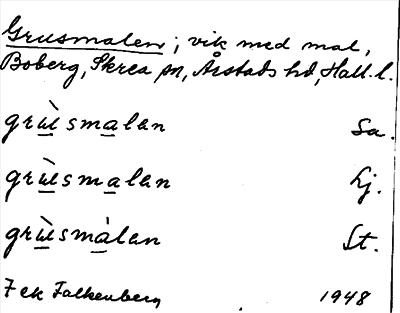 Grusmalen; vik med mal,
Boberg, Skrea sn, Årstads hd, Hall. l.
grùsmalan Sa.
grùsmalan Lj.
grùsmàlan St.
7 ek Falkenberg 1948